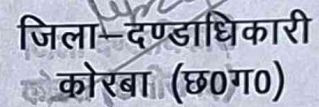 जिला–दण्डाधिकारी
कोरबा (छ0ग0)